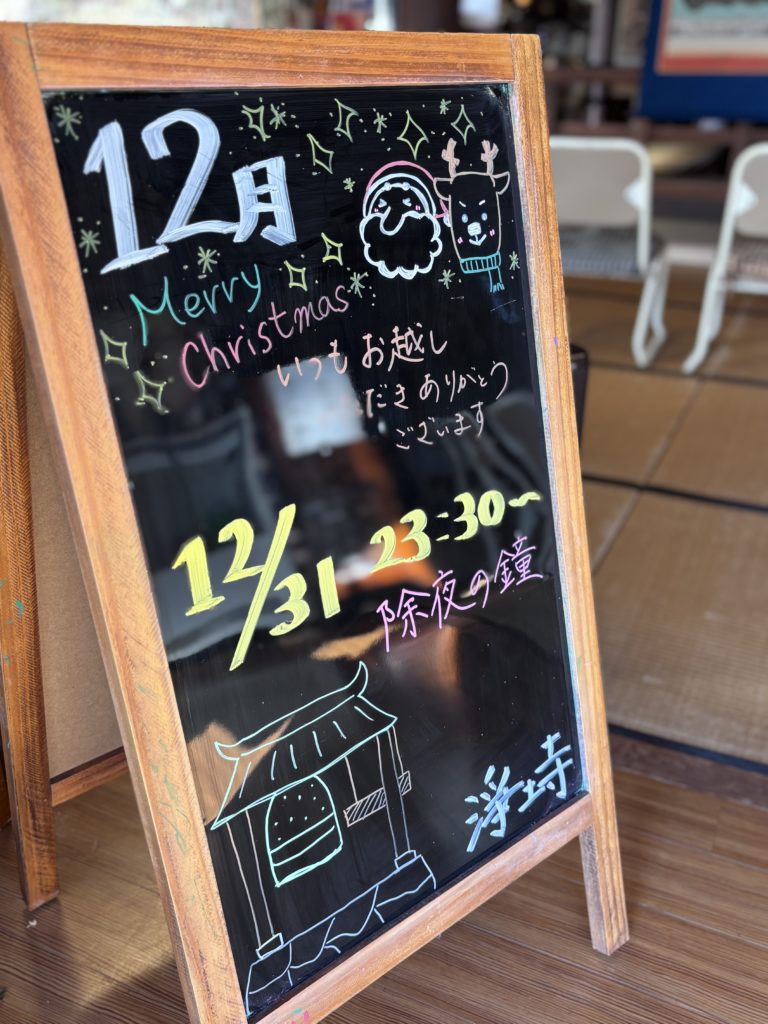 12月
Merry
Christmas
いつもお越し
いただきありがとう
ございます
12/31 23:30~
除夜の鐘
浄土寺